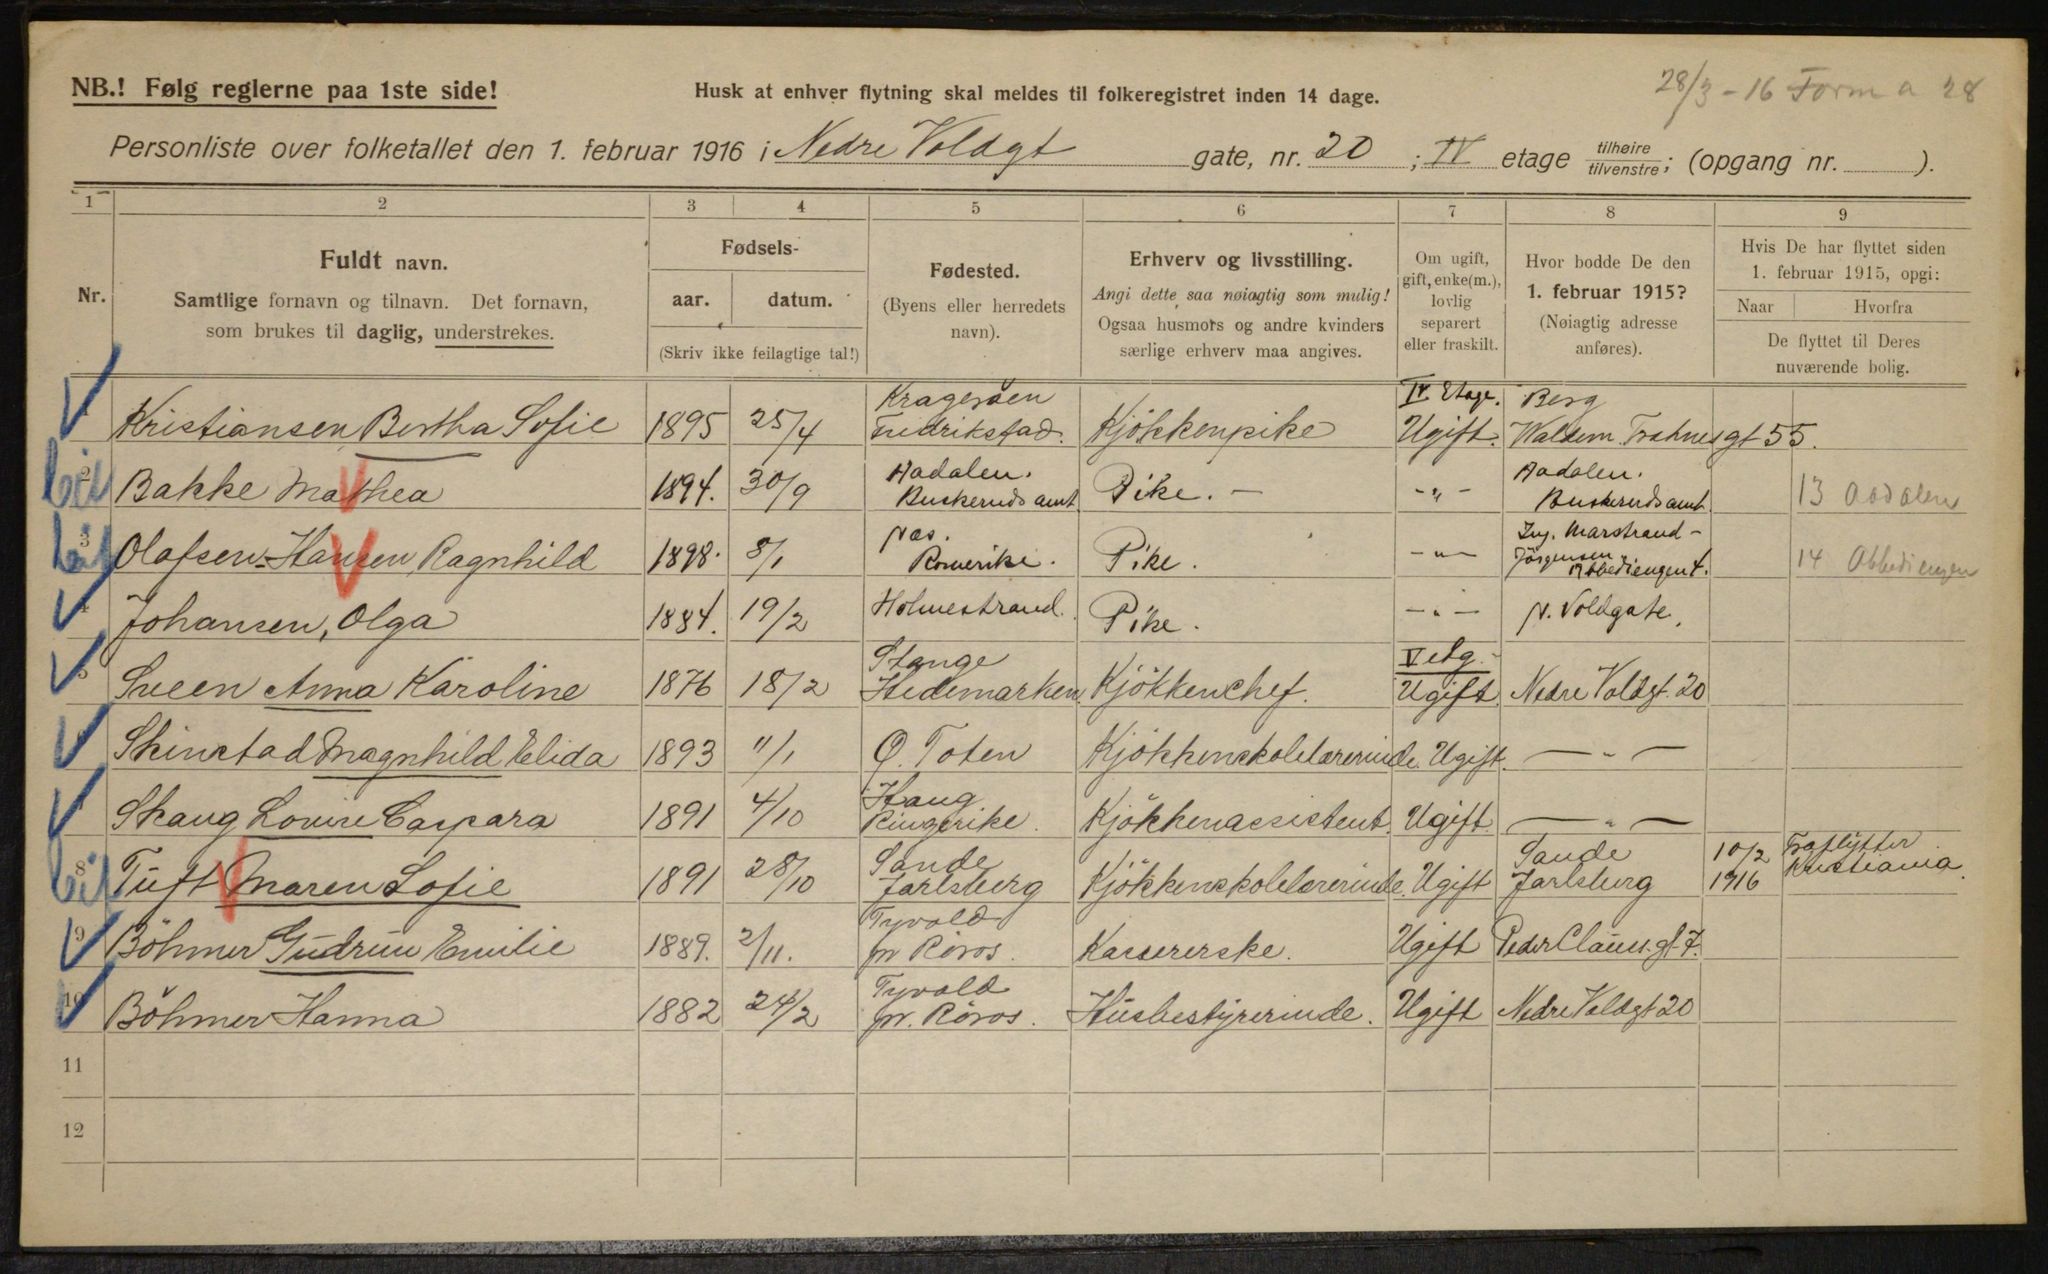 28/3-16 Form a 28
NB.! Følg reglerne paa 1ste side!
Husk at enhver flytning skal meldes til folkeregistret inden 14 dage.
Personliste over folketallet den 1. februar 1916 i Nedre Voldgt gate, nr. 20; IV etage tilhøire/tilvenstre; (opgang nr. ).
1 2 3 4 5 6 7 8 9
Nr.
Fuldt navn.
Samtlige fornavn og tilnavn. Det fornavn,
som brukes til daglig, understrekes.
Fødsels-
aar. datum.
(Skriv ikke feilagtige tal!)
Fødested.
(Byens eller herredets
navn).
Erhverv og livsstilling.
Angi dette saa nøiagtig som mulig!
Ogsaa husmors og andre kvinders
særlige erhverv maa angives.
Om ugift,
gift, enke(m.),
lovlig
separert
eller fraskilt.
Hvor bodde De den
1. februar 1915?
(Nøiagtig adresse
anføres).
Hvis De har flyttet siden
1. februar 1915, opgi:
Naar Hvorfra
De flyttet til Deres
nuværende bolig.
Kragerøen IV Etage. Berg
1 Kristiansen Bertha Sofie 1895 25/4 Fredrikstad. Kjökkenpike Ugift. Waldem. Trahnesgt 55.
Aadalen. Aadalen.
2 Bakke Mathea 1894. 30/9 Buskeruds amt. Pike. — -"- Buskeruds amt. 13 Aadalen
Næs. Ing. Marstrand-
3 Olafsen-Hansen, Ragnhild 1898. 8/1 Romerike. Pike. -"- Jörgensen Abbediengen 4. 14 Abbediengen
4 Johansen, Olga 1884. 19/2 Holmestrand. Pike. -"- N. Voldgate.
Stange V etg.
5 Sveen Anna Karoline 1876 18/2 Hedemarken. Kjökkenchef. Ugift. Nedre Voldgt. 20
6 Skinstad Magnhild Elida 1893 11/1 Ø. Toten Kjökkenskolelærerinde. Ugift. — " —
Haug
7 Skaug Lovise Caspara 1891 4/10 Ringerike. Kjökkenassistent. Ugift. — " —
Sande Sande 10/2 Fraflytter
8 Tuft Maren Sofie 1891 28/10 Jarlsberg Kjökkenskolelærerinde. Ugift Jarlsberg 1916 Kristiania.
Tyvold
9 Böhmer Gudrun Emilie 1889. 2/11. pr Röros. Kassererske. Ugift Peder Claus. gt. 7.
Tyvold
10 Böhmer Hanna 1882 24/2 pr. Röros. Husbestyrerinde. Ugift Nedre Voldgt 20
11
12